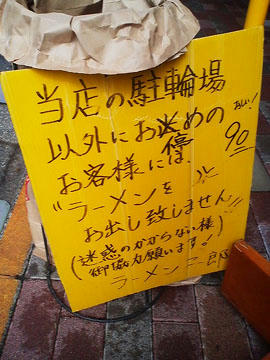 当店の駐輪場
以外にお停めの
お客様には、
"ラーメンを
お出し致しません!!
(迷惑のかからない様
御協力願います!)
ラーメン二郎